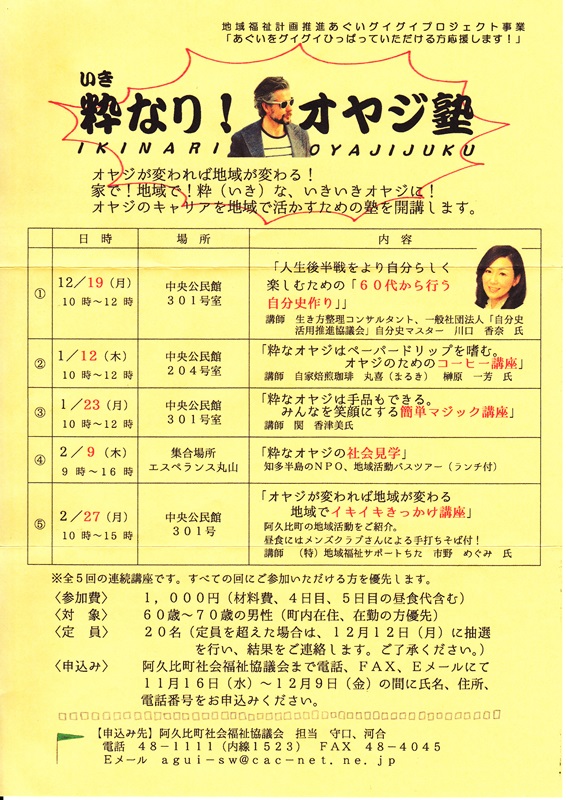 地域福祉計画推進あぐいグイグイプロジェクト事業
「あぐいをグイグイひっぱっていただける方応援します！」
いき
粋なり！オヤジ塾
IKINARI OYAJIJUKU
オヤジが変われば地域が変わる！
家で！地域で！粋（いき）な、いきいきオヤジに！
オヤジのキャリアを地域で活かすための塾を開講します。
日 時 場 所 内 容
① 12／19（月）
10時～12時
中央公民館
301号室
「人生後半戦をより自分らしく
楽しむための「60代から行う
自分史作り」」
講師 生き方整理コンサルタント、一般社団法人「自分史
活用推進協議会」自分史マスター 川口 香奈 氏
② 1／12（木）
10時～12時
中央公民館
204号室
「粋なオヤジはペーパードリップを嗜む。
オヤジのためのコーヒー講座」
講師 自家焙煎珈琲 丸喜（まるき） 榊原 一芳 氏
③ 1／23（月）
10時～12時
中央公民館
301号室
「粋なオヤジは手品もできる。
みんなを笑顔にする簡単マジック講座」
講師 関 香津美氏
④ 2／9（木）
9時～16時
集合場所
エスペランス丸山
「粋なオヤジの社会見学」
知多半島のNPO、地域活動バスツアー（ランチ付）
⑤ 2／27（月）
10時～15時
中央公民館
301号
「オヤジが変われば地域が変わる
地域でイキイキきっかけ講座」
阿久比町の地域活動をご紹介。
昼食にはメンズクラブさんによる手打ちそば付！
講師 （特）地域福祉サポートちた 市野 めぐみ 氏
※全5回の連続講座です。すべての回にご参加いただける方を優先します。
〈参加費〉 1，000円（材料費、4日目、5日目の昼食代含む）
〈対 象〉 60歳～70歳の男性（町内在住、在勤の方優先）
〈定 員〉 20名（定員を超えた場合は、12月12日（月）に抽選
を行い、結果をご連絡します。ご了承ください。）
〈申込み〉 阿久比町社会福祉協議会まで電話、FAX、Eメールにて
11月16日（水）～12月9日（金）の間に氏名、住所、
電話番号をお申込みください。
【申込み先】阿久比町社会福祉協議会 担当 守口、河合
電話 48-1111（内線1523） FAX 48-4045
Eメール agui-sw@cac-net.ne.jp